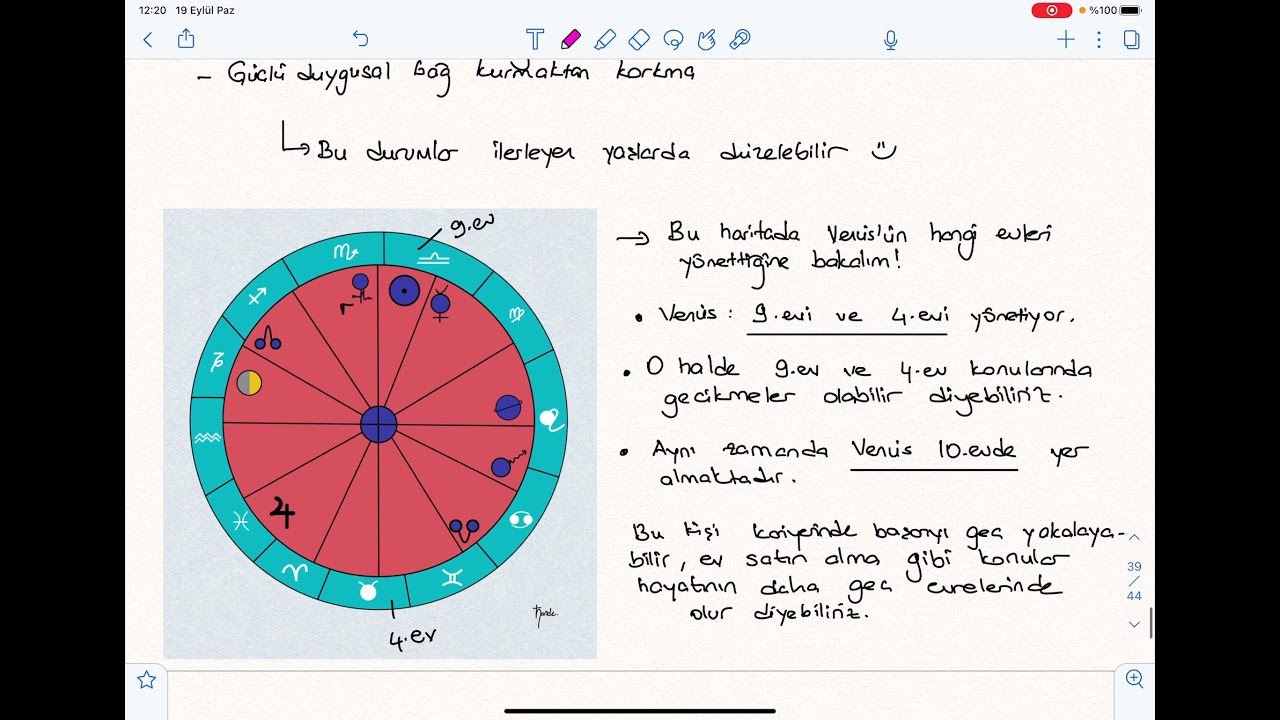 12:20 19 Eylül Paz
%100
- Güçlü duygusal bağ kurmaktan korkma
Bu durumlar ilerleyen yaşlarda düzelebilir
9.ev
→ Bu haritada Venüs'ün hangi evleri
yönettiğine bakalım!
• Venüs: 9.evi ve 4.evi yönetiyor.
• O halde 9.ev ve 4.ev konularında
gecikmeler olabilir diyebiliriz.
• Aynı zamanda Venüs 10.evde yer
almaktadır.
Bu kişi kariyerinde başarıyı geç yakalaya-
bilir, ev satın alma gibi konular
hayatının daha geç evrelerinde
olur diyebiliriz.
4.ev
39
/
44